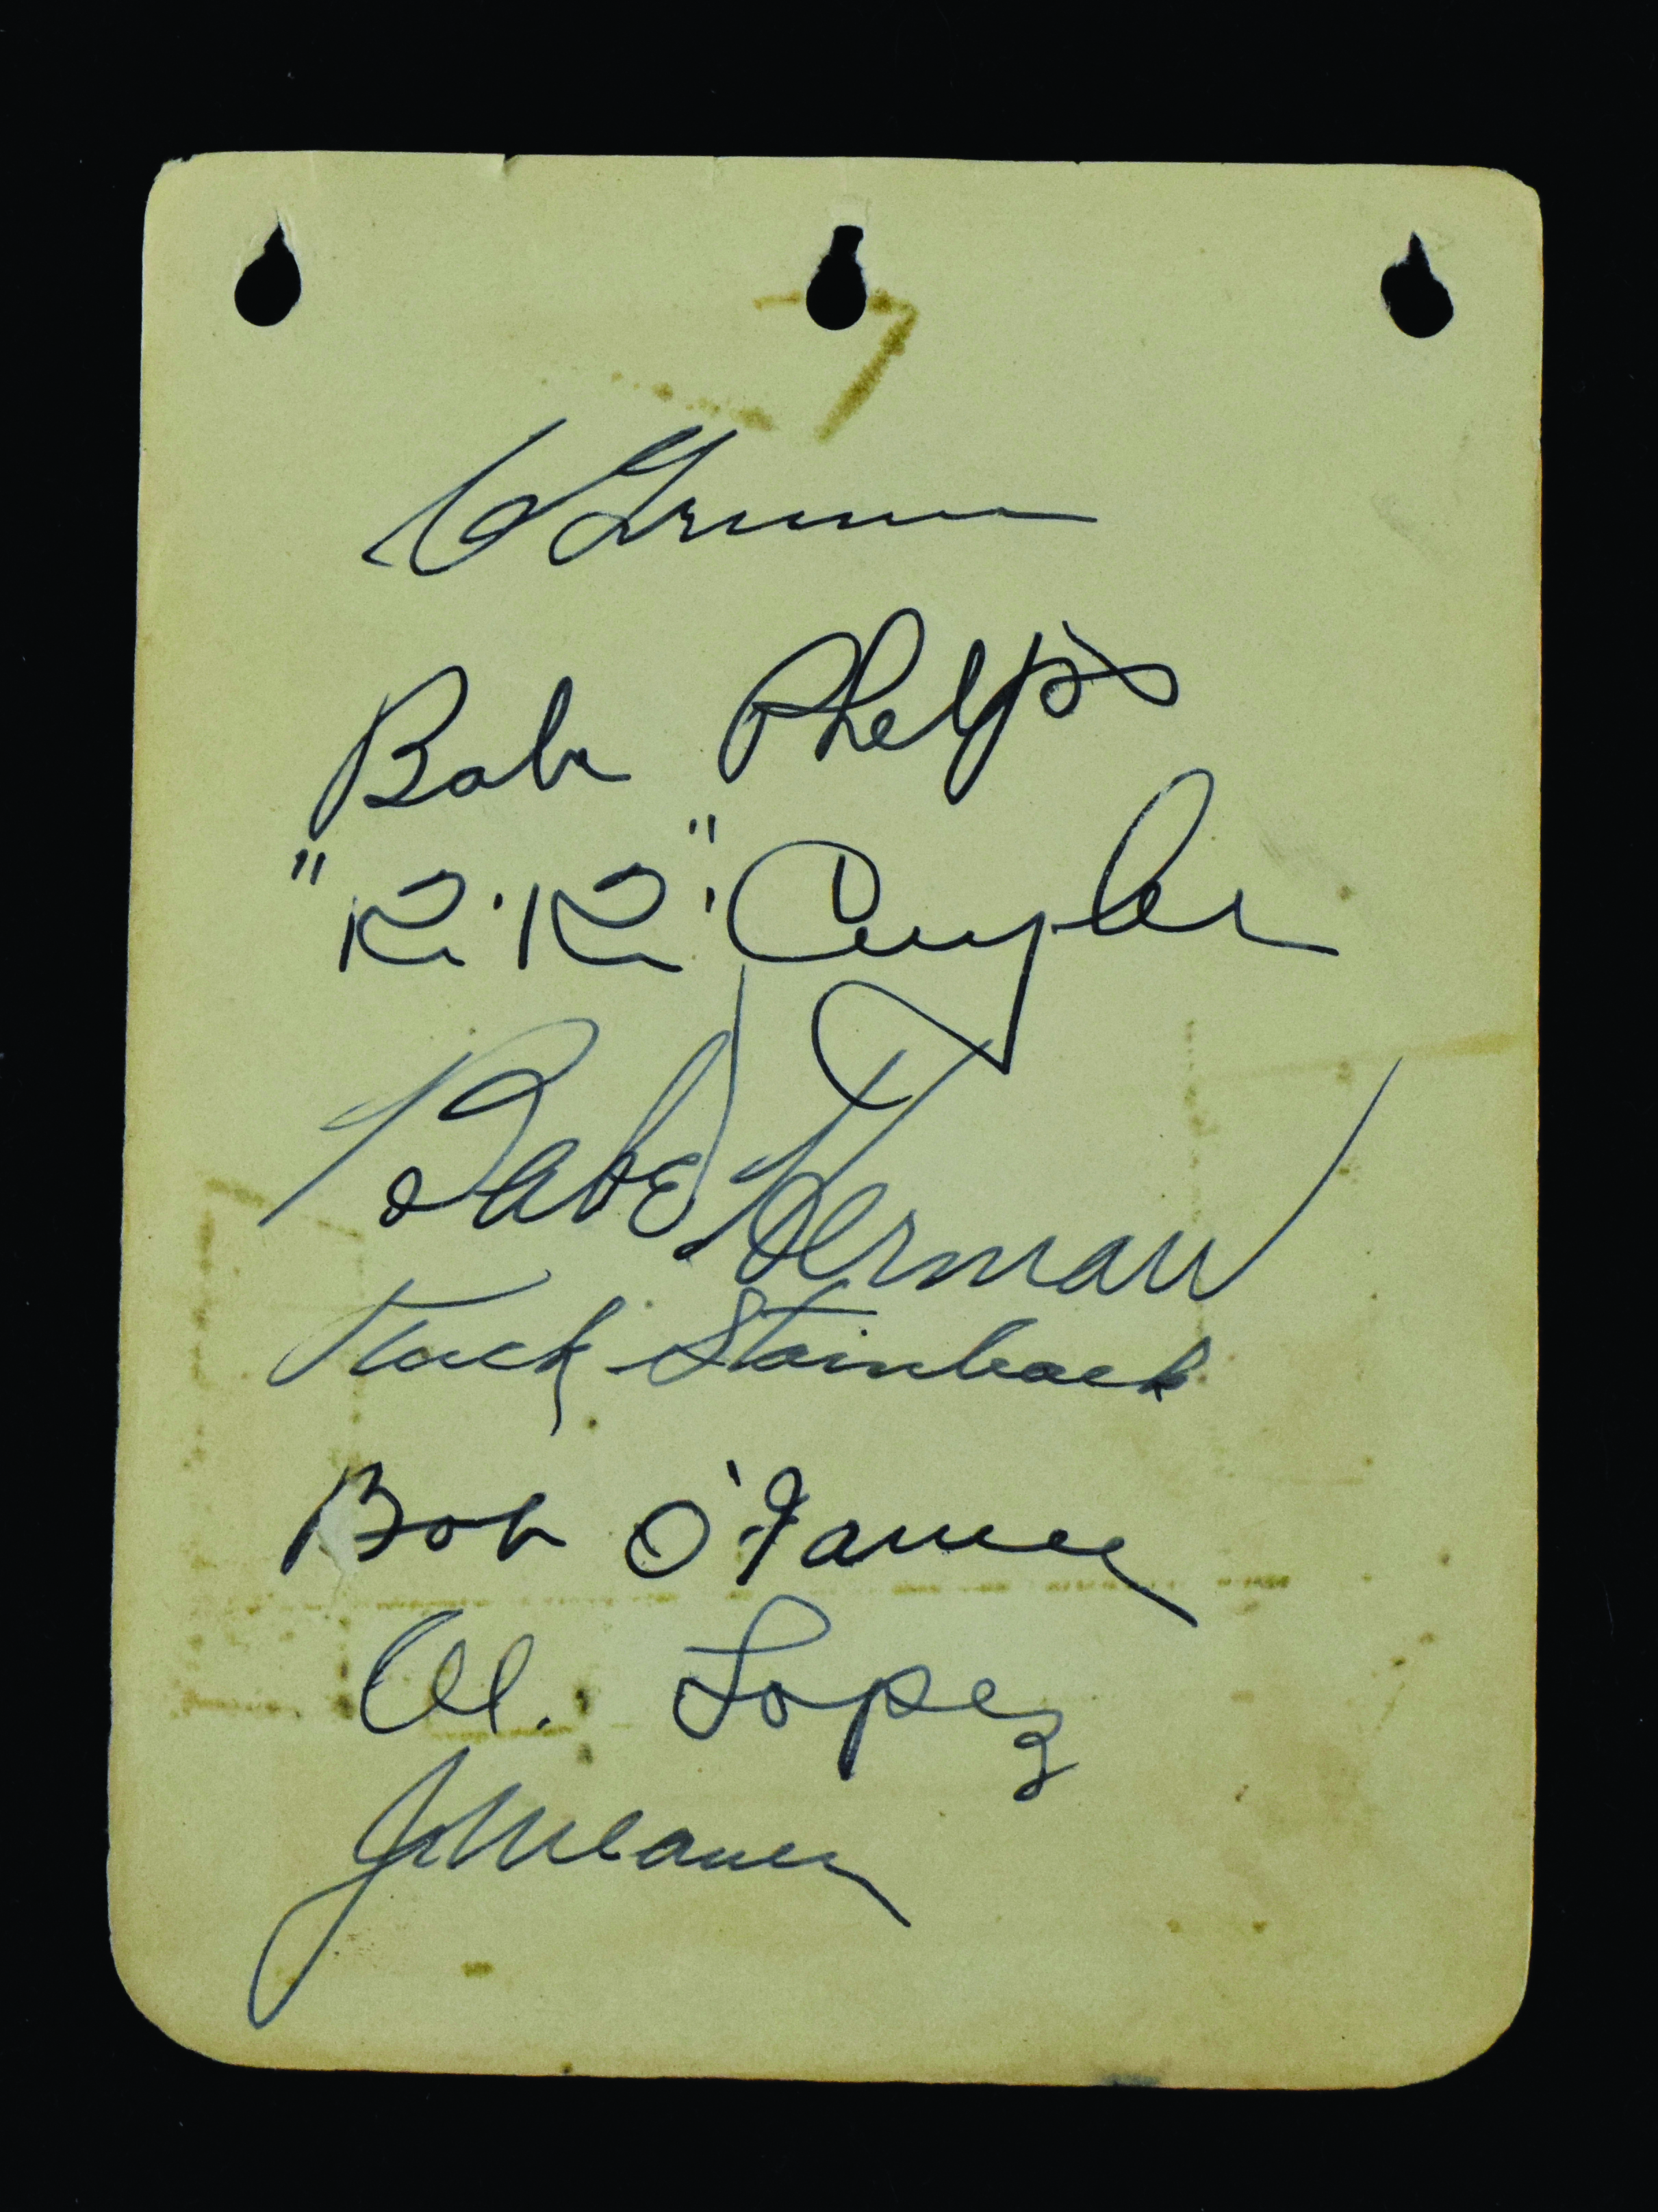 C Grimm
Babe Phelps
"Ki·Ki" Cuyler
Babe Herman
Tuck Stainback
Bob O'Farrell
Al. Lopez